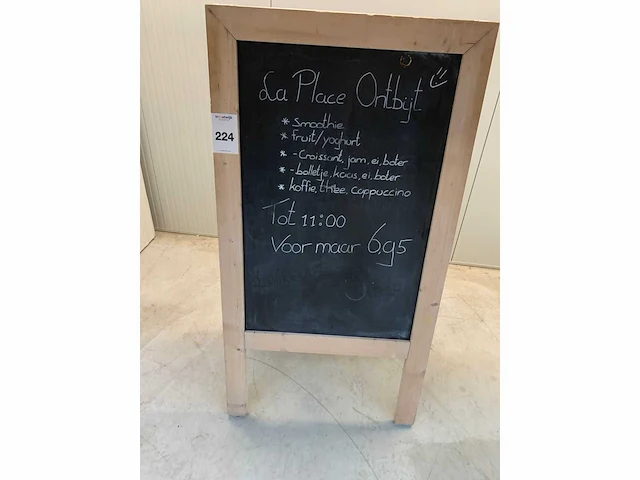 La Place Ontbijt
* Smoothie
* Fruit/yoghurt
* - Croissant, jam, ei, boter
* - bolletje, kaas, ei, boter
* koffie, thee, Cappuccino
Tot 11:00
Voor maar 6,95
224